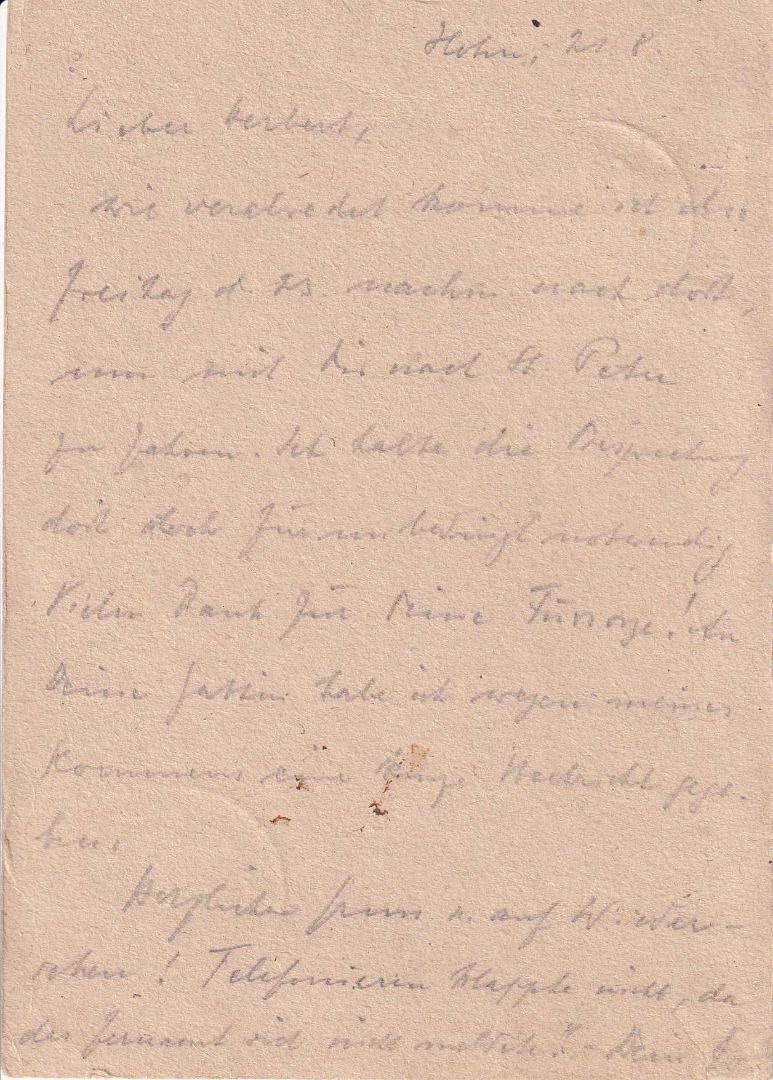 Hohn, 21. 8.
Lieber Herbert,
wie verabredet komme ich also
Freitag d. 23. nachm. nach dort,
um mit Dir nach St. Peter
zu fahren. Ich halte die Besprechung
dort doch für unbedingt notwendig
Vielen Dank für Deine Fürsorge! An
Deine Gattin habe ich wegen meines
Kommens eine kurze Nachricht gege-
ben.
Herzlichen Gruss u. auf Wieder-
sehen! Telefonieren klappte nicht, da
das sich nicht meldete. - Dein